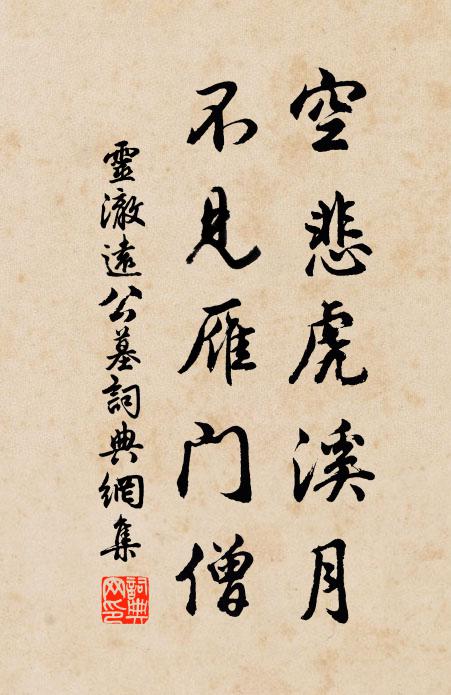 空悲虎溪月
不见雁门僧
靈澈遠公墓詞典網集
詞典网印